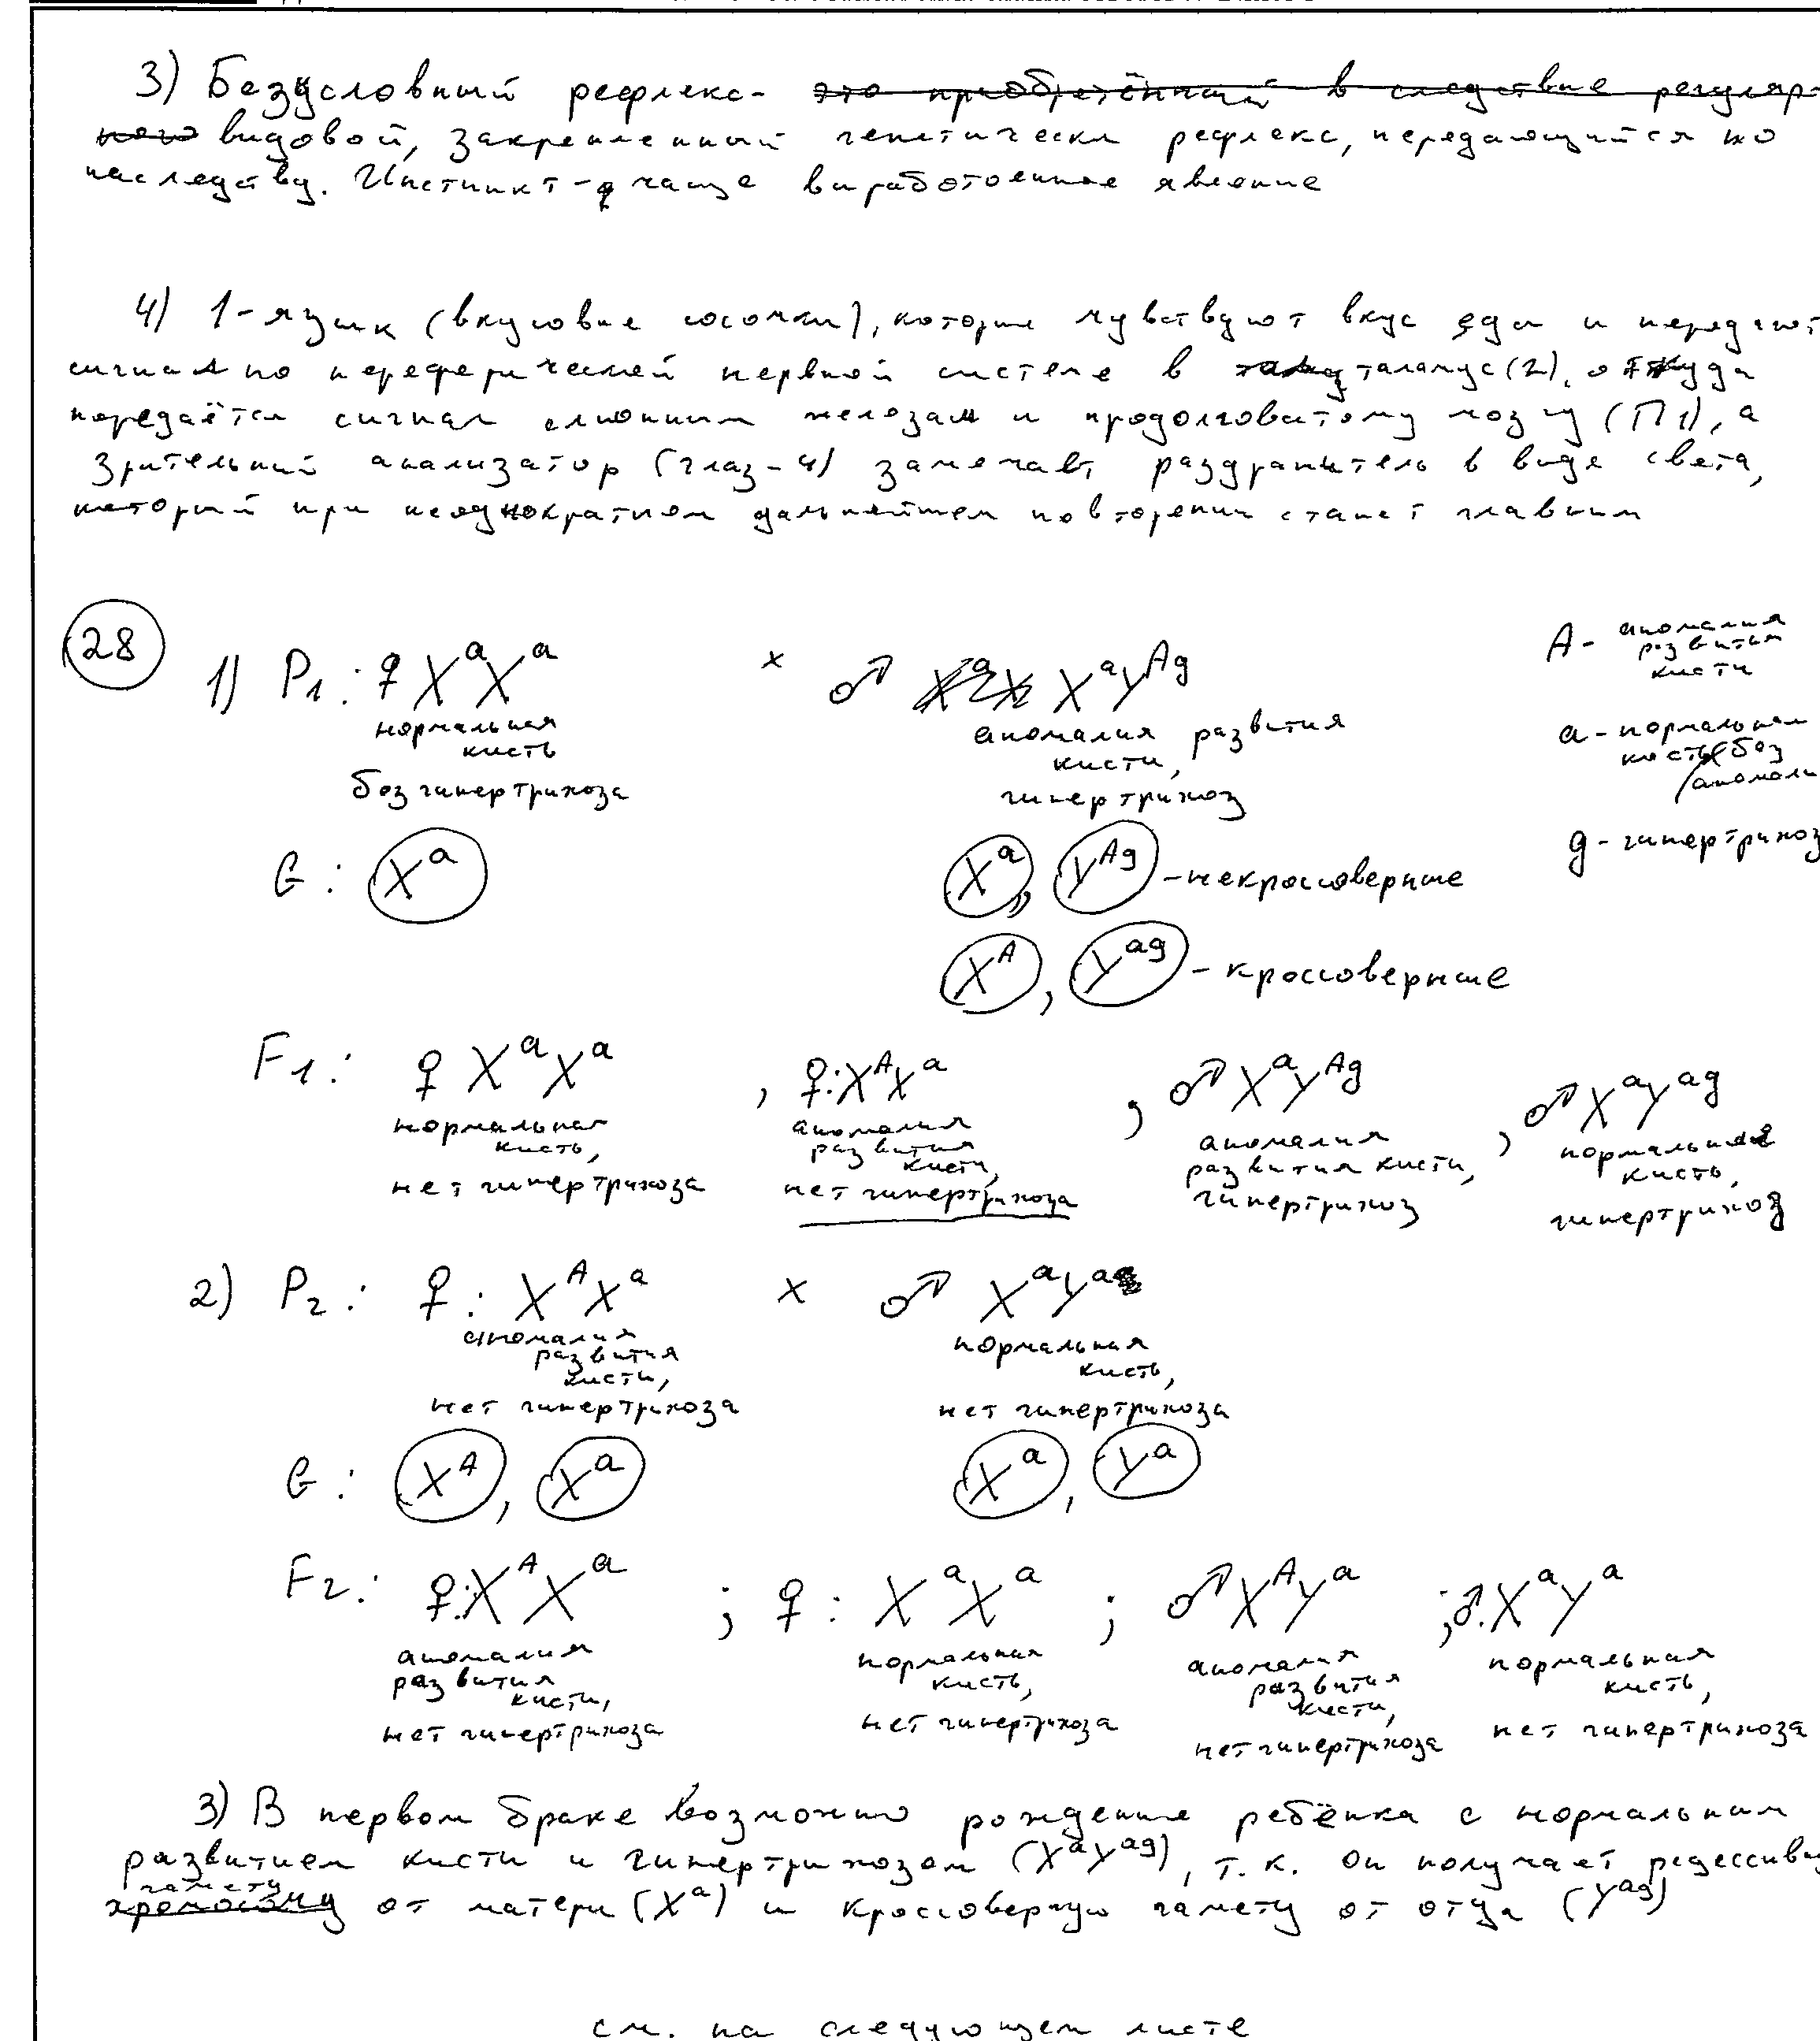 3) Безусловный рефлекс- это приобретённый в следствие регуляр-
ного видовой, закрепленный генетически рефлекс, передающийся по
наследству. Инстинкт- чаще выработоенное явление
4) 1-язык (вкусовые сосочки), которые чувствуют вкус еды и передают
сигнал по переферической нервной системе в таламус(2), откуда
передаётся сигнал слюнным железам и продолговатому мозгу (П1), а
зрительный анализатор (глаз-4) замечает раздражитель в виде света,
который при неоднократном дальнейшем повторении станет главным
28
1) P₁: ♀ XᵃXᵃ × ♂ XᵃYᴬᵍ
А- аномалия развития кисти
нормальная кисть без гипертрихоза
аномалия развития кисти, гипертрихоз
а- нормальная кисть (без аномали
g- гипертрихоз
G: Xᵃ Xᵃ, Yᴬᵍ -некроссоверные
Xᴬ, Yᵃᵍ - кроссоверные
F₁: ♀ XᵃXᵃ, ♀: XᴬXᵃ, ♂ XᵃYᴬᵍ, ♂ XᵃYᵃᵍ
нормальная кисть, нет гипертрихоза
аномалия развития кисти, нет гипертрихоза
аномалия развития кисти, гипертрихоз
нормальная кисть, гипертрихоз
2) P₂: ♀: XᴬXᵃ × ♂ XᵃYᵃ
аномалия развития кисти, нет гипертрихоза
нормальная кисть, нет гипертрихоза
G: Xᴬ, Xᵃ Xᵃ, Yᵃ
F₂: ♀: XᴬXᵃ; ♀: XᵃXᵃ; ♂ XᴬYᵃ; ♂: XᵃYᵃ
аномалия развития кисти, нет гипертрихоза
нормальная кисть, нет гипертрихоза
аномалия развития кисти, нет гипертрихоза
нормальная кисть, нет гипертрихоза
3) В первом браке возможно рождение ребёнка с нормальным
развитием кисти и гипертрихозом (XᵃYᵃᵍ), т.к. он получает рецессивную
гамету
хромосому от матери (Xᵃ) и кроссоверную гамету от отца (Yᵃᵍ)
см. на следующем листе